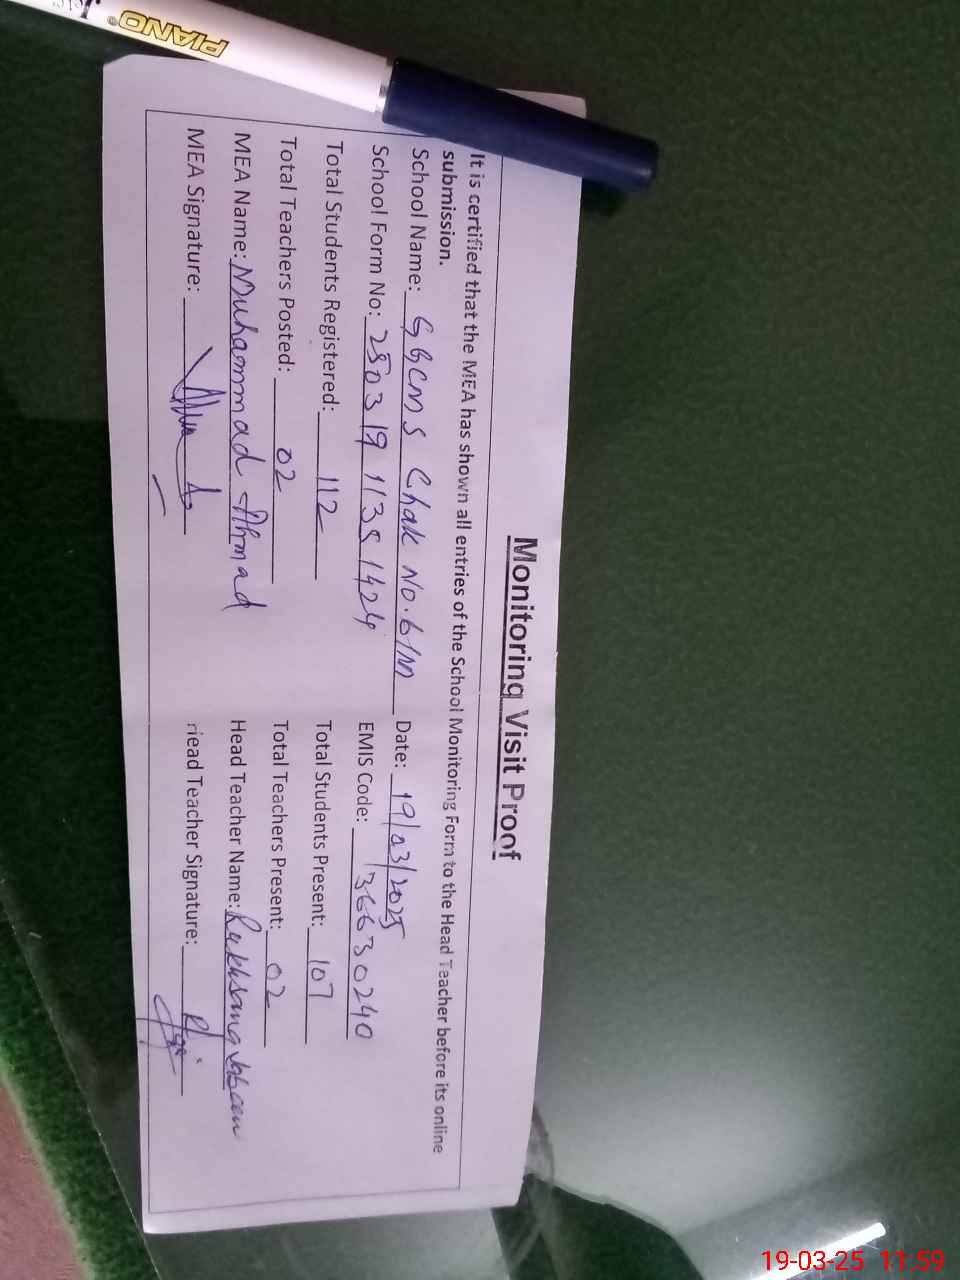 PIANO®
Monitoring Visit Proof
It is certified that the MEA has shown all entries of the School Monitoring Form to the Head Teacher before its online
submission.
School Name: GGCMS Chak No. 61M Date: 19/03/2025
School Form No: 2503 19 1135 1424 EMIS Code: 36630240
Total Students Registered: 112 Total Students Present: 107
Total Teachers Posted: 02 Total Teachers Present: 02
MEA Name: Muhammad Ahmad Head Teacher Name: Rukhsana Jabeen
MEA Signature: Head Teacher Signature:
19-03-25 11:59